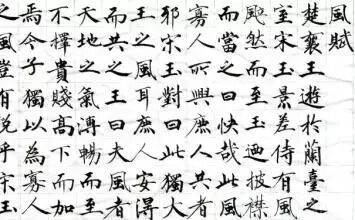 風賦
楚襄王遊於蘭臺之
宮宋玉景差侍有風
颯然而至王迺披襟
而當之曰快哉此風
寡人所與庶人共者
邪宋玉對曰此獨大
王之風耳庶人安得
而共之王曰夫風者
天地之氣溥暢而至
不擇貴賤高下而加
焉今子獨以為寡人
之風豈有說乎宋玉